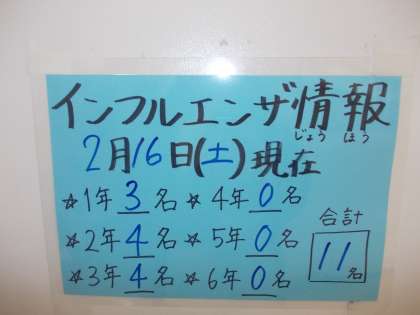 インフルエンザ情報
じょう ほう
2月16日(土)現在
☆1年3名 ☆4年0名
☆2年4名 ☆5年0名
☆3年4名 ☆6年0名
合計
11名